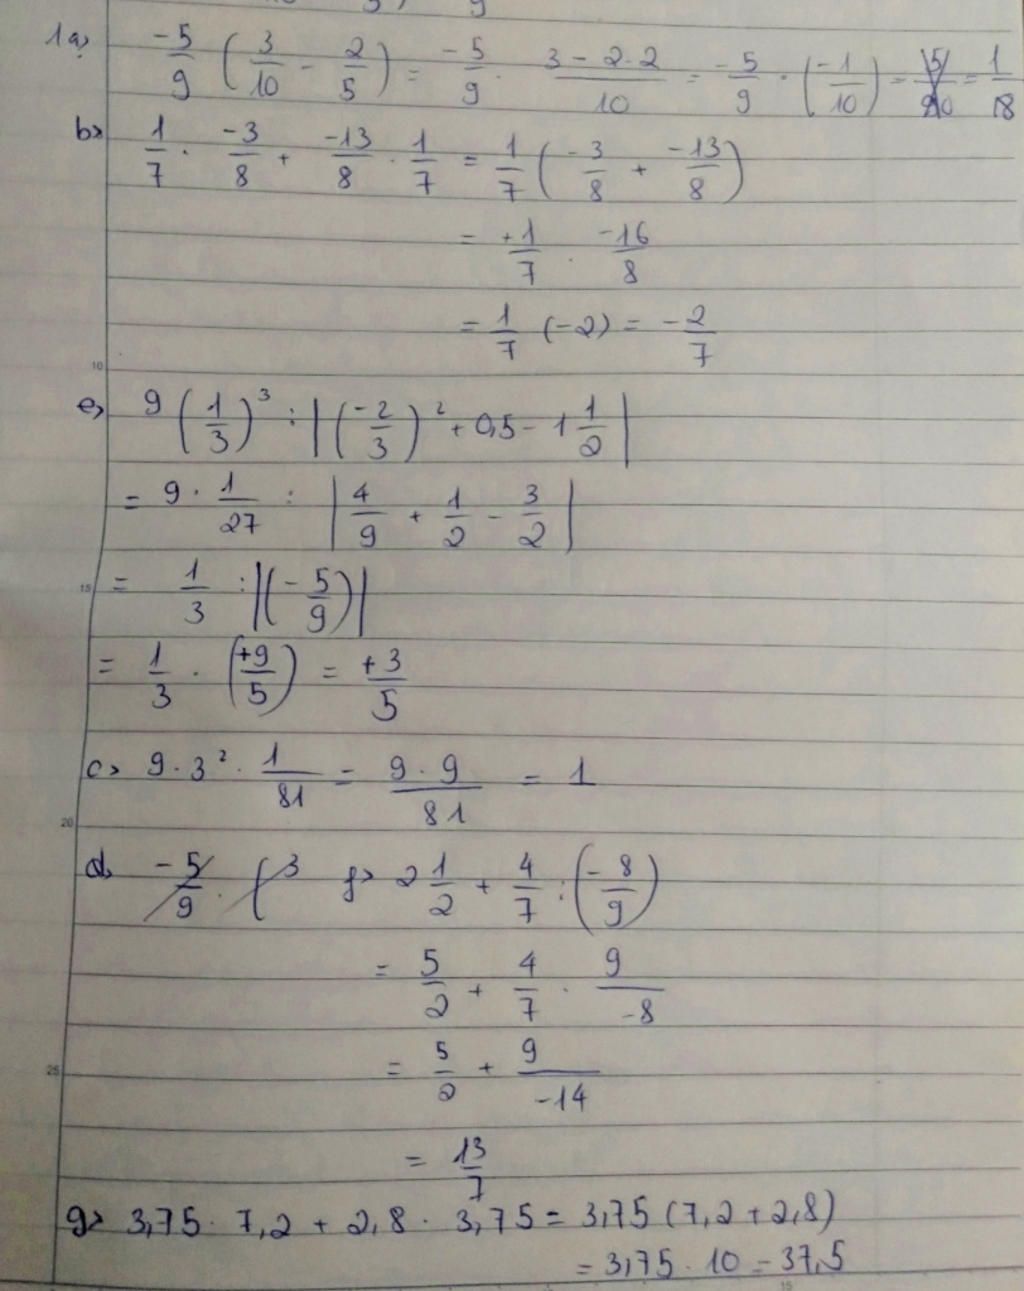 1a) -5/9 (3/10 - 2/5) = -5/9 . (3 - 2.2)/10 = -5/9 . (-1/10) = 5/90 = 1/18
b> 1/7 . -3/8 + -13/8 . 1/7 = 1/7 (-3/8 + -13/8)
= +1/7 . -16/8
= 1/7 (-2) = -2/7
10
e) 9 (1/3)³ : |(-2/3)² + 0,5 - 1 1/2|
= 9 . 1/27 : |4/9 + 1/2 - 3/2|
15
= 1/3 : |(-5/9)|
= 1/3 . (+9/5) = +3/5
c> 9 . 3² . 1/81 = 9 . 9/81 = 1
20
d, -5/9 . ( 3 f> 2 1/2 + 4/7 : (-8/9)
= 5/2 + 4/7 . 9/-8
25
= 5/2 + 9/-14
= 13/7
g> 3,75 . 7,2 + 2,8 . 3,75 = 3,75 (7,2 + 2,8)
= 3,75 . 10 = 37,5
15